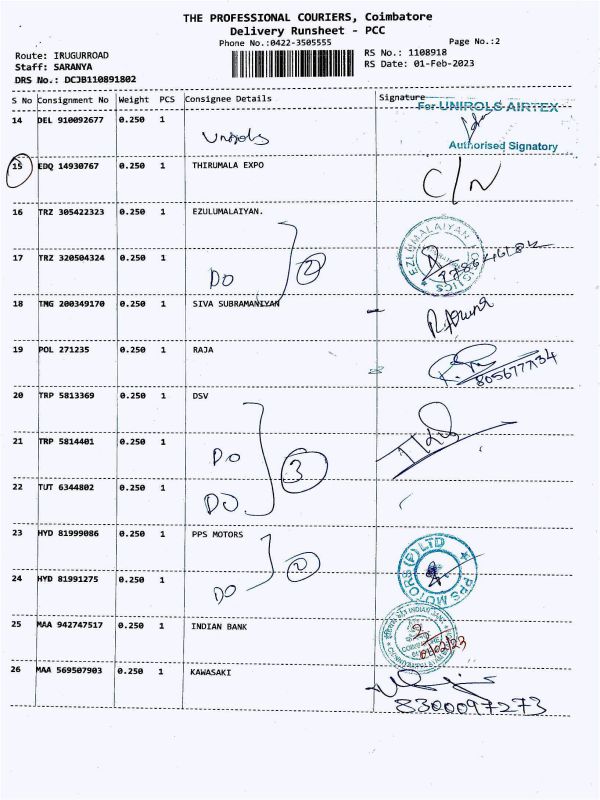 THE PROFESSIONAL COURIERS, Coimbatore
Delivery Runsheet - PCC
Phone No.:0422-3505555 Page No.:2
Route: IRUGURROAD RS No.: 1108918
Staff: SARANYA RS Date: 01-Feb-2023
DRS No.: DCJB110891802
S No Consignment No Weight PCS Consignee Details Signature
For UNIROLS AIRTEX
14 DEL 910092677 0.250 1 Unirols
Authorised Signatory
15 EDQ 14930767 0.250 1 THIRUMALA EXPO C/N
16 TRZ 305422323 0.250 1 EZULUMALAIYAN.
17 TRZ 320504324 0.250 1 DO 2
EZLUMALAIYAN
18 TMG 200349170 0.250 1 SIVA SUBRAMANIYAN R. Aruna
19 POL 271235 0.250 1 RAJA
8056777134
20 TRP 5813369 0.250 1 DSV
21 TRP 5814401 0.250 1 DO 3
22 TUT 6344802 0.250 1 DO
23 HYD 81999086 0.250 1 PPS MOTORS
PPS MOTORS (P) LTD
24 HYD 81991275 0.250 1 DO 2
25 MAA 942747517 0.250 1 INDIAN BANK
INDIAN BANK
01/02/23
26 MAA 569507903 0.250 1 KAWASAKI
8300097273